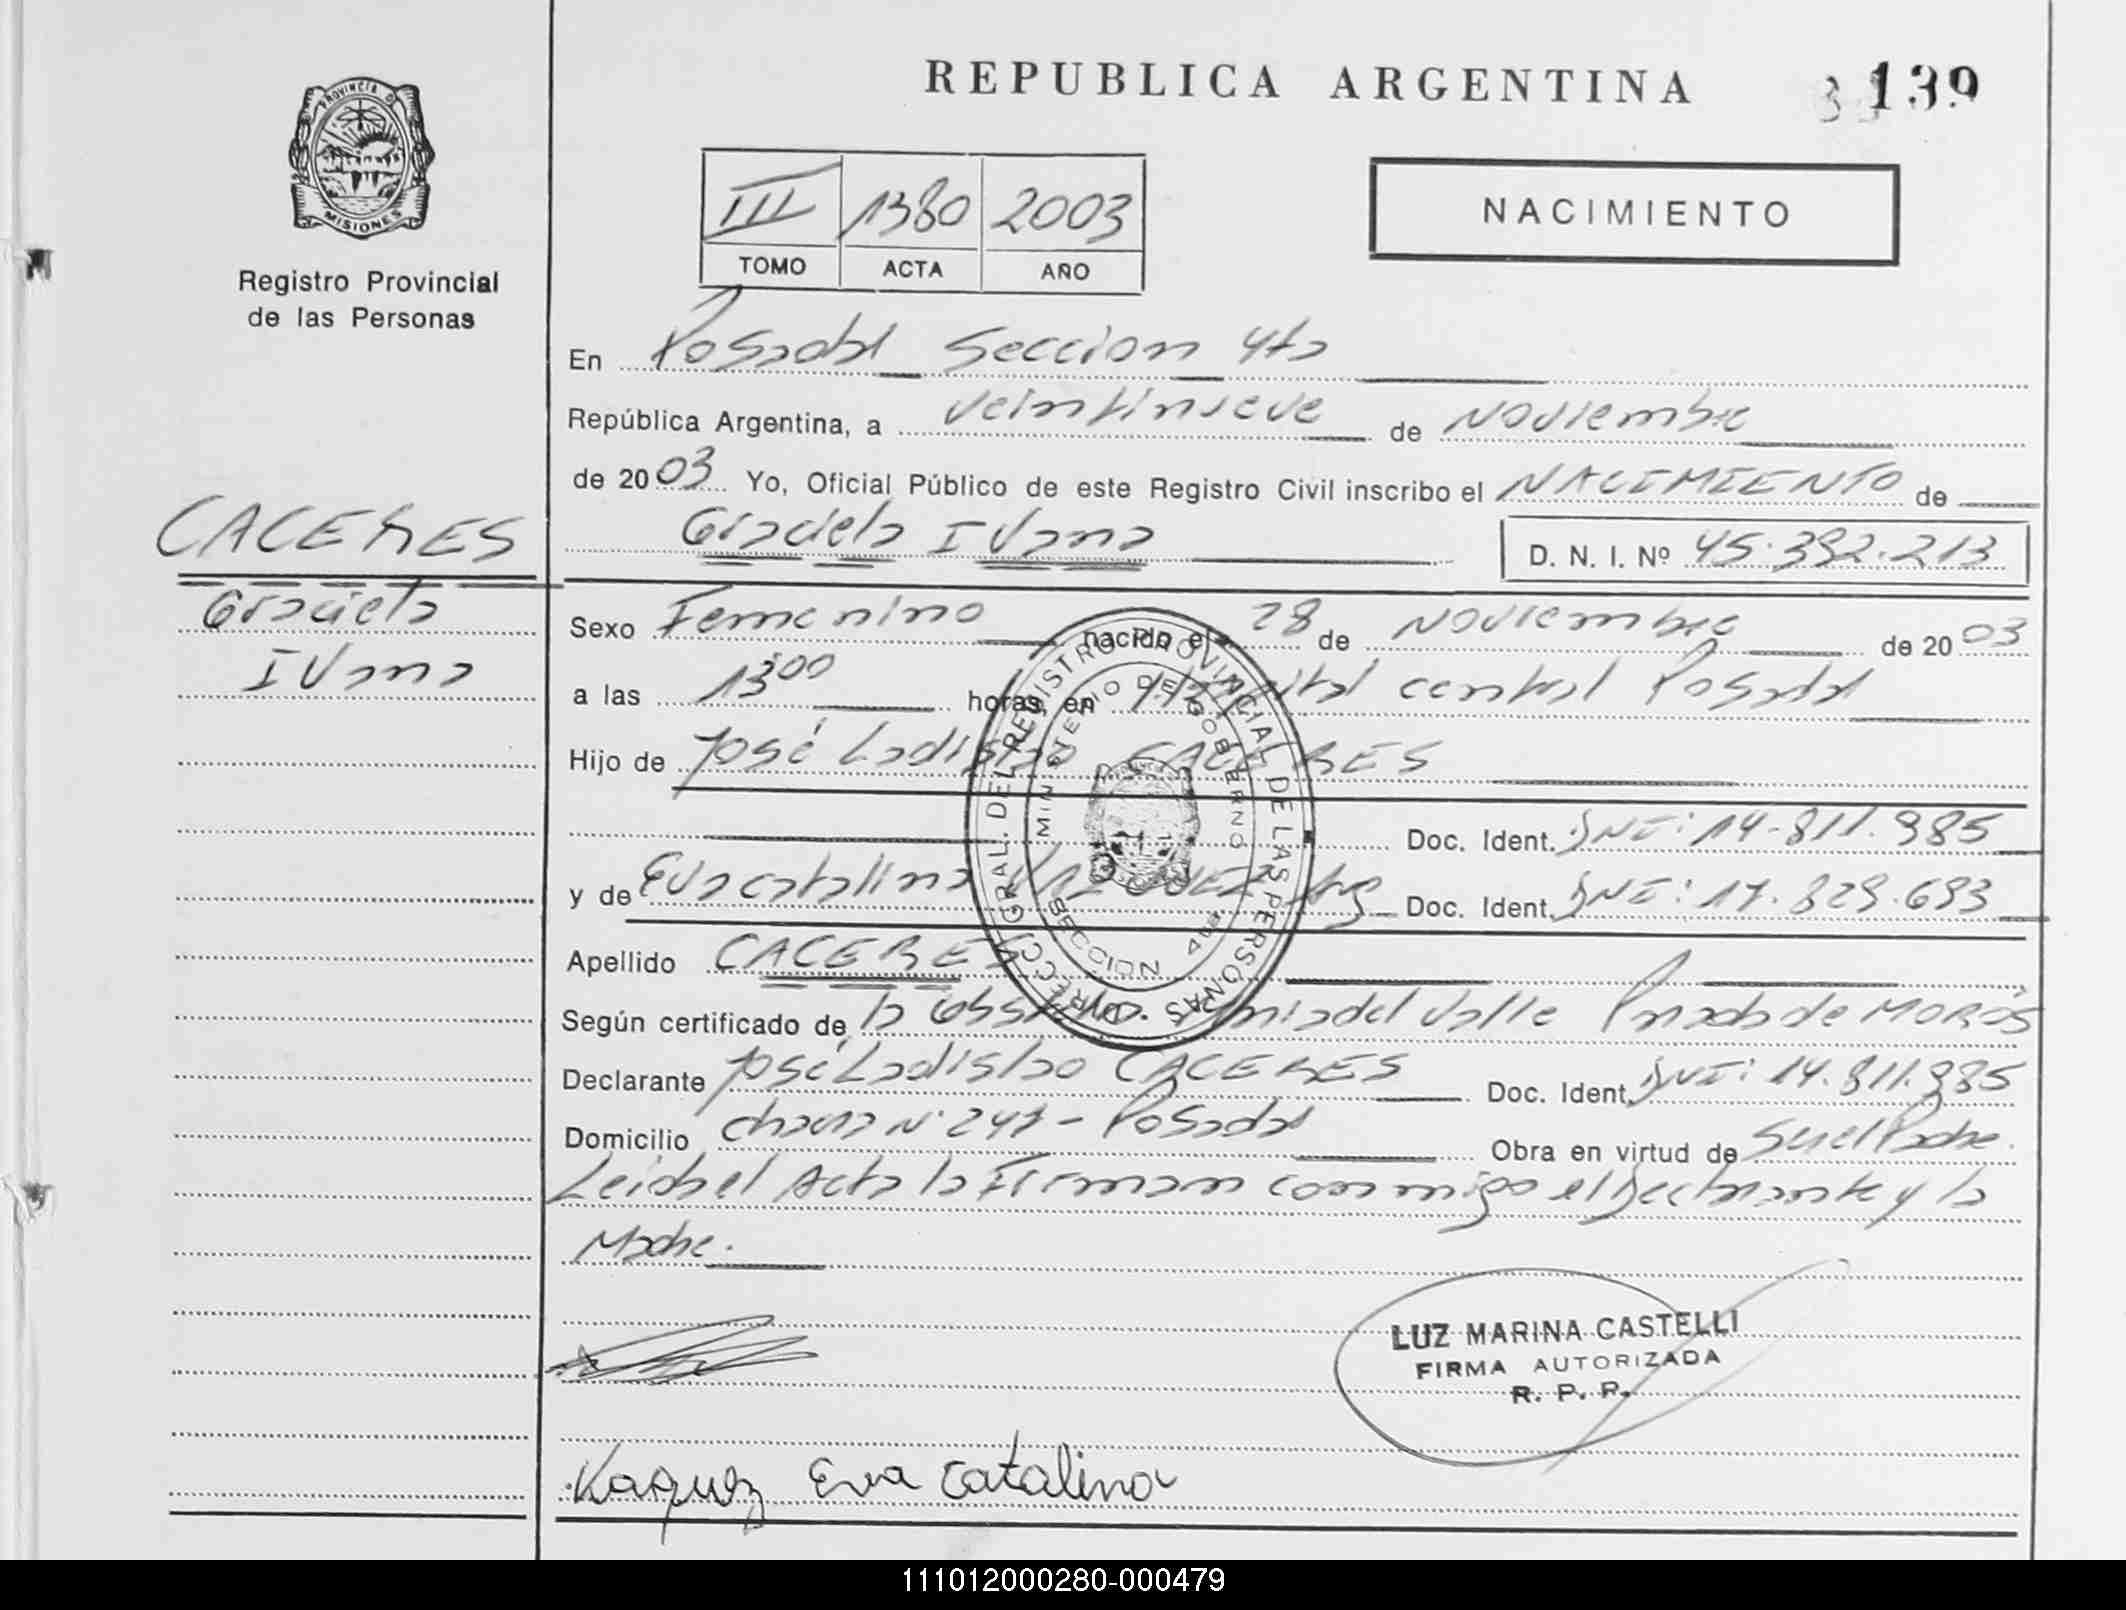 REPUBLICA ARGENTINA
139
PROVINCIA DE
MISIONES
Registro Provincial
de las Personas
III 1380 2003
TOMO ACTA AÑO
NACIMIENTO
En Posadas Seccion 4ta
República Argentina, a veintinueve de Noviembre
de 2003 Yo, Oficial Público de este Registro Civil inscribo el NACIMIENTO de
CACERES
Graciela Ivana
D. N. I. Nº 45.392.213
Graciela
Ivana
Sexo Femenino nacido el 28 de Noviembre de 2003
a las 13:00 horas, en Hospital central Posadas
Hijo de José Ladislao CACERES
Doc. Ident. DNI: 14.811.985
y de Eva catalina VAZQUEZ Arg Doc. Ident. DNI: 17.829.693
Apellido CACERES
Según certificado de la Obst. del Valle de MOROS
Declarante José Ladislao CACERES Doc. Ident. DNI: 14.811.985
Domicilio chacra Nº 247 - Posadas Obra en virtud de Ser el Padre.
Leida el Acta la Firman conmigo el Declarante y la
Madre.
DIRECC. GRAL. DEL REGISTRO PROVINCIAL DE LAS PERSONAS
MINISTERIO DE GOBIERNO
SECCION 4ta
LUZ MARINA CASTELLI
FIRMA AUTORIZADA
R. P. P.
Vaquez Eva Catalina
111012000280-000479